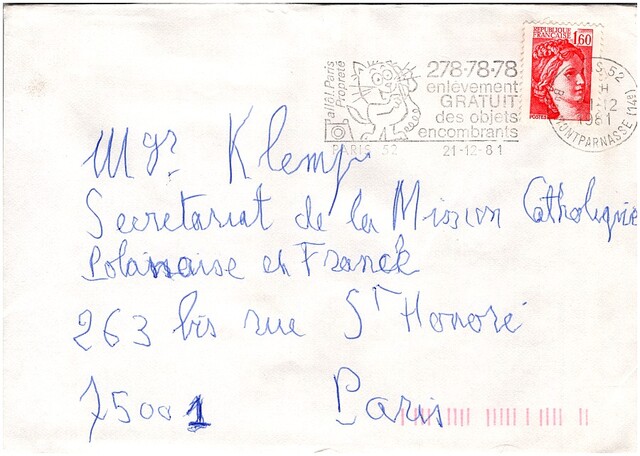 allô! Paris
Propreté
278·78·78
enlèvement
GRATUIT
des objets
encombrants
PARIS 52
21-12-81
REPUBLIQUE
FRANCAISE
1,60
POSTES
PARIS 52
1981
MONTPARNASSE (14e)
Mgr. Klemp
Secretariat de la Mission Catholique
Polanaise en Franck
263 bis rue St Honoré
75001 Paris